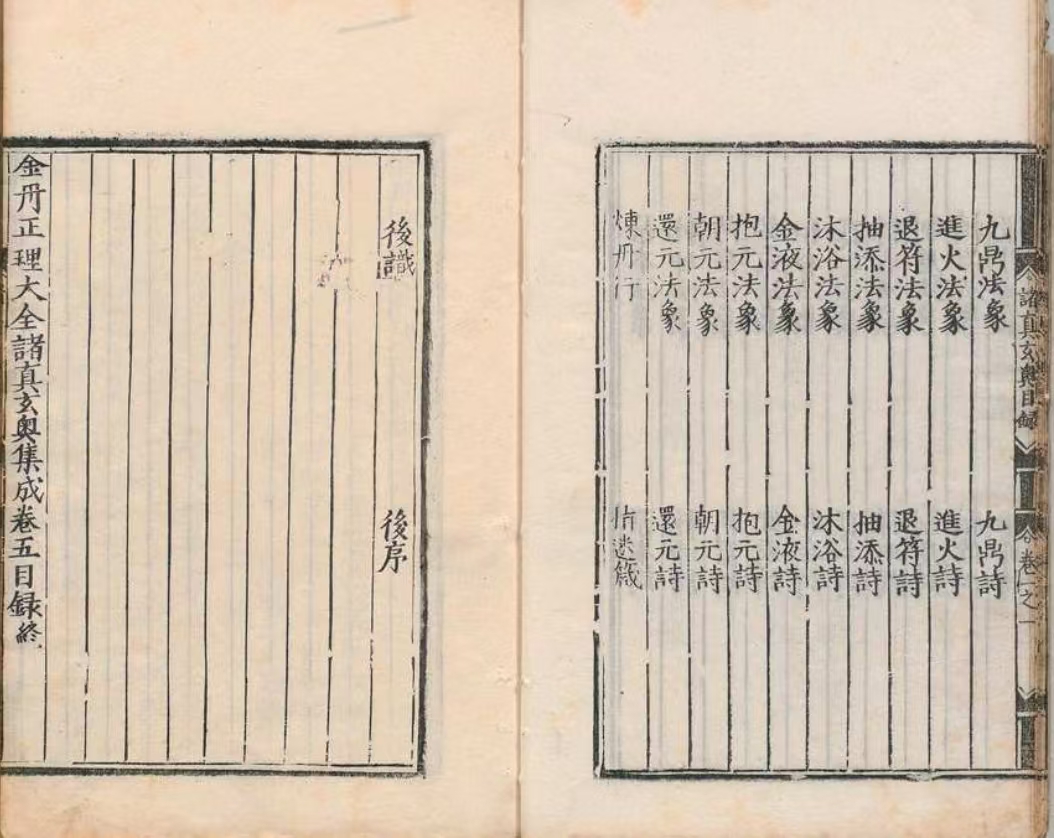 諸真玄奧目録
九鼎法象　九鼎詩
進火法象　進火詩
退符法象　退符詩
抽添法象　抽添詩
沐浴法象　沐浴詩
金液法象　金液詩
抱元法象　抱元詩
朝元法象　朝元詩
還元法象　還元詩
煉丹行　指迷箴
後識　後序
金丹正理大全諸真玄奧集成卷五目録終